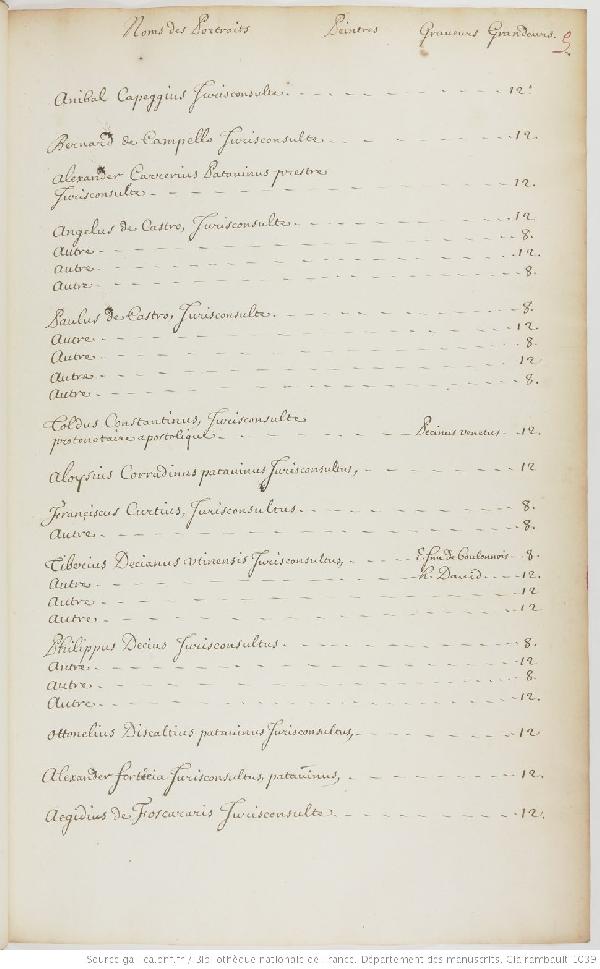 Noms des Portraits Peintres Graveurs Grandeurs. 5
Anibal Capeggius Jurisconsulte. 12.
Bernard de Campello Jurisconsulte 12.
Alexander Carrerius Patavinus prestre
Jurisconsulte 12.
Angelus de Castro, Jurisconsulte. 12
Autre. 8.
Autre. 12.
Autre. 8.
Paulus de Castro, Jurisconsulte. 8.
Autre. 12.
Autre. 8.
Autre. 12
Autre. 8.
Toldus Constantinus, Jurisconsulte
protenotaire apostolique. Picinus venetus 12.
Aloysius Corradinus patavinus Jurisconsultus, 12
Franciscus Curtius, Jurisconsultus. 8.
Autre. 8.
Tiberius Decianus utinensis Jurisconsultus, de boulonnois 8.
Autre H. David 12.
Autre. 12
Autre. 12
Philippus Decius Jurisconsultus. 8.
Autre. 12
Autre. 8
Autre. 12.
Ottonelius Discaltius patavinus Jurisconsultus, 12
Alexander forticia Jurisconsultus, patavinus, 12.
Aegidius de Foscararis Jurisconsulte 12.
Source gallica.bnf.fr / Bibliothèque nationale de France. Département des manuscrits. Clairambault 1039